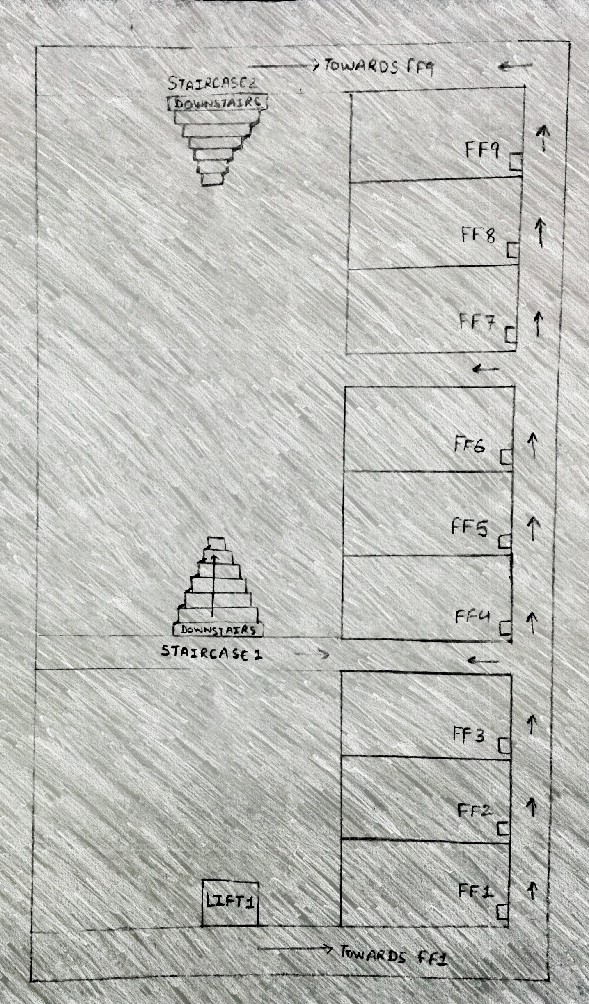 TOWARDS FF9
STAIRCASE 2
DOWNSTAIRS
FF9
FF8
FF7
FF6
FF5
FF4
DOWNSTAIRS
STAIRCASE 1
FF3
FF2
FF1
LIFT1
TOWARDS FF1